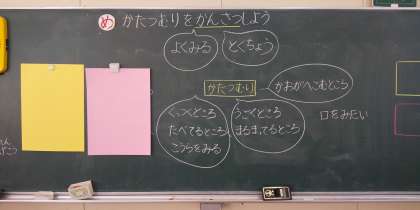 め かたつむりをかんさつしよう
よくみる
とくちょう
かたつむり
かおがへこむところ
くっつくところ
たべてるところ
こうらをみる
うごくところ
まるまってるところ
口をみたい